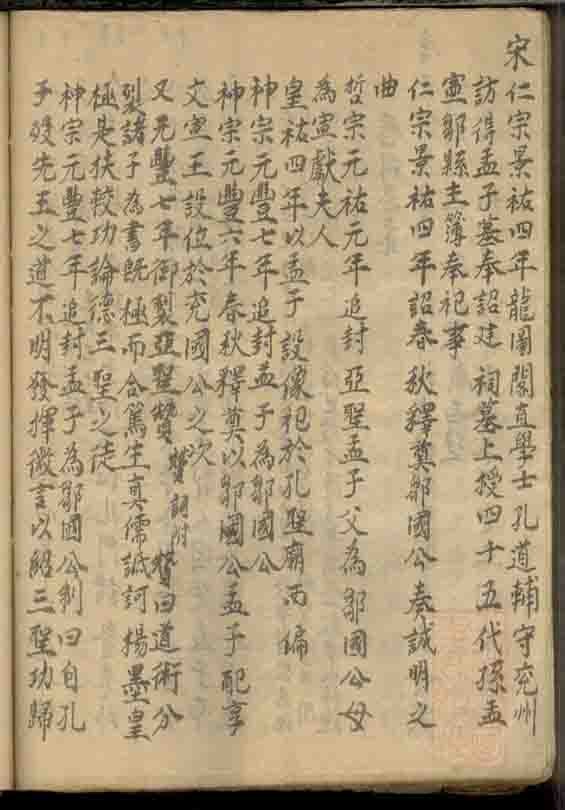 宋仁宗景祐四年龍圖閣直學士孔道輔守兗州
訪得孟子墓奉詔建祠墓上授四十五代孫孟
寧鄒縣主簿奉祀事
仁宗景祐四年詔春秋釋奠鄒國公奏誠明之
曲
哲宗元祐元年追封亞聖孟子父為鄒國公母
為宣獻夫人
皇祐四年以孟子設像祀於孔聖廟西偏
神宗元豐七年追封孟子為鄒國公
神宗元豐六年春秋釋奠以鄒國公孟子配享
文宣王設位於兗國公之次
又元豐七年御製亞聖贊 贊詞附 贊曰道術分
裂諸子為書既極而合篤生真儒詆訶揚墨皇
極是扶較功論德三聖之徒
神宗元豐七年追封孟子為鄒國公制曰自孔
子歿先王之道不明發揮微言以紹三聖功歸